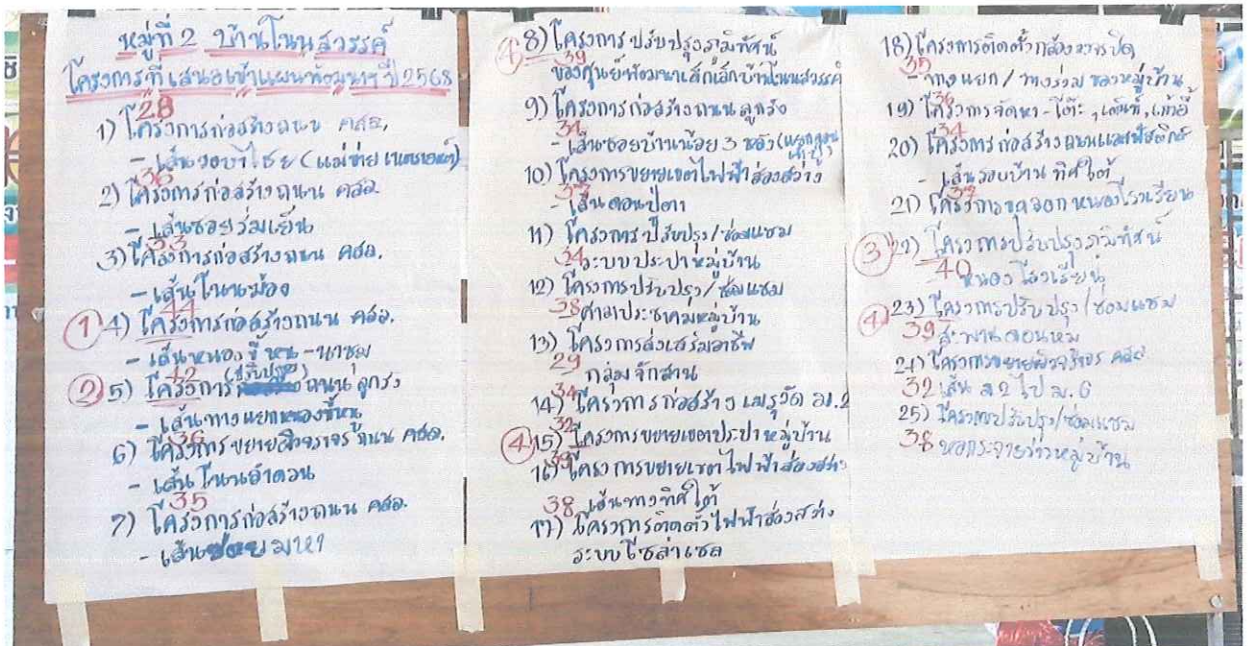 หมู่ที่ 2 บ้านโนนสวรรค์
โครงการที่เสนอเข้าแผนพัฒนาฯปี 2568
28
1) โครงการก่อสร้างถนน คสล.
- เส้นรอบ
2) โครงการก่อสร้างถนน คสล.
- เส้นซอยร่มเย็น
33
3) โครงการก่อสร้างถนน คสล.
- เส้นโนนฆ้อง
44
① 4) โครงการก่อสร้างถนน คสล.
- เส้นหนองขี้หนู-นาชม
42 (ปรับปรุง)
② 5) โครงการ ถนนลูกรัง
- เส้นทางแยกหนองขี้หนู
36
6) โครงการขยายผิวจราจร ถนน คสล.
- เส้นโนนอำดวน
35
7) โครงการก่อสร้างถนน คสล.
- เส้น มหา
④ 8) โครงการปรับปรุงภูมิทัศน์
39
ของศูนย์พัฒนาเด็กเล็กบ้านโนนสวรรค์
9) โครงการก่อสร้างถนนลูกรัง
34
- เส้นซอยบ้านน้อย 3 หลัง
10) โครงการขยายเขตไฟฟ้าส่องสว่าง
37
- เส้นดอนปู่ตา
11) โครงการปรับปรุง/ซ่อมแซม
34 ระบบประปาหมู่บ้าน
12) โครงการปรับปรุง/ซ่อมแซม
38 ศาลาประชาคมหมู่บ้าน
13) โครงการส่งเสริมอาชีพ
29 กลุ่มจักสาน
34
14) โครงการก่อสร้างเมรุวัด ม.2
32
④ 15) โครงการขยายเขตประปาหมู่บ้าน
39
16) โครงการขยายเขตไฟฟ้าส่องสว่าง
38 เส้นทางทิศใต้
17) โครงการติดตั้งไฟฟ้าส่องสว่าง
ระบบโซล่าเซล
18) โครงการติดตั้งกล้องวงจรปิด
35
- ทางแยก/ทางร่วม ของหมู่บ้าน
36
19) โครงการจัดหา-โต๊ะ,เต็นท์,เก้าอี้
34
20) โครงการก่อสร้างถนนแอสฟัสติกส์
- เส้นรอบบ้าน ทิศใต้
37
21) โครงการขุดลอกหนองโรงเรียน
③ 22) โครงการปรับปรุงภูมิทัศน์
40
- หนองโรงเรียน
④ 23) โครงการปรับปรุง/ซ่อมแซม
39 สะพานดอนหม
24) โครงการขยายผิวจราจร คสล
32 เส้น ม.2 ไป ม.6
25) โครงการปรับปรุง/ซ่อมแซม
38 หอกระจายข่าวหมู่บ้าน